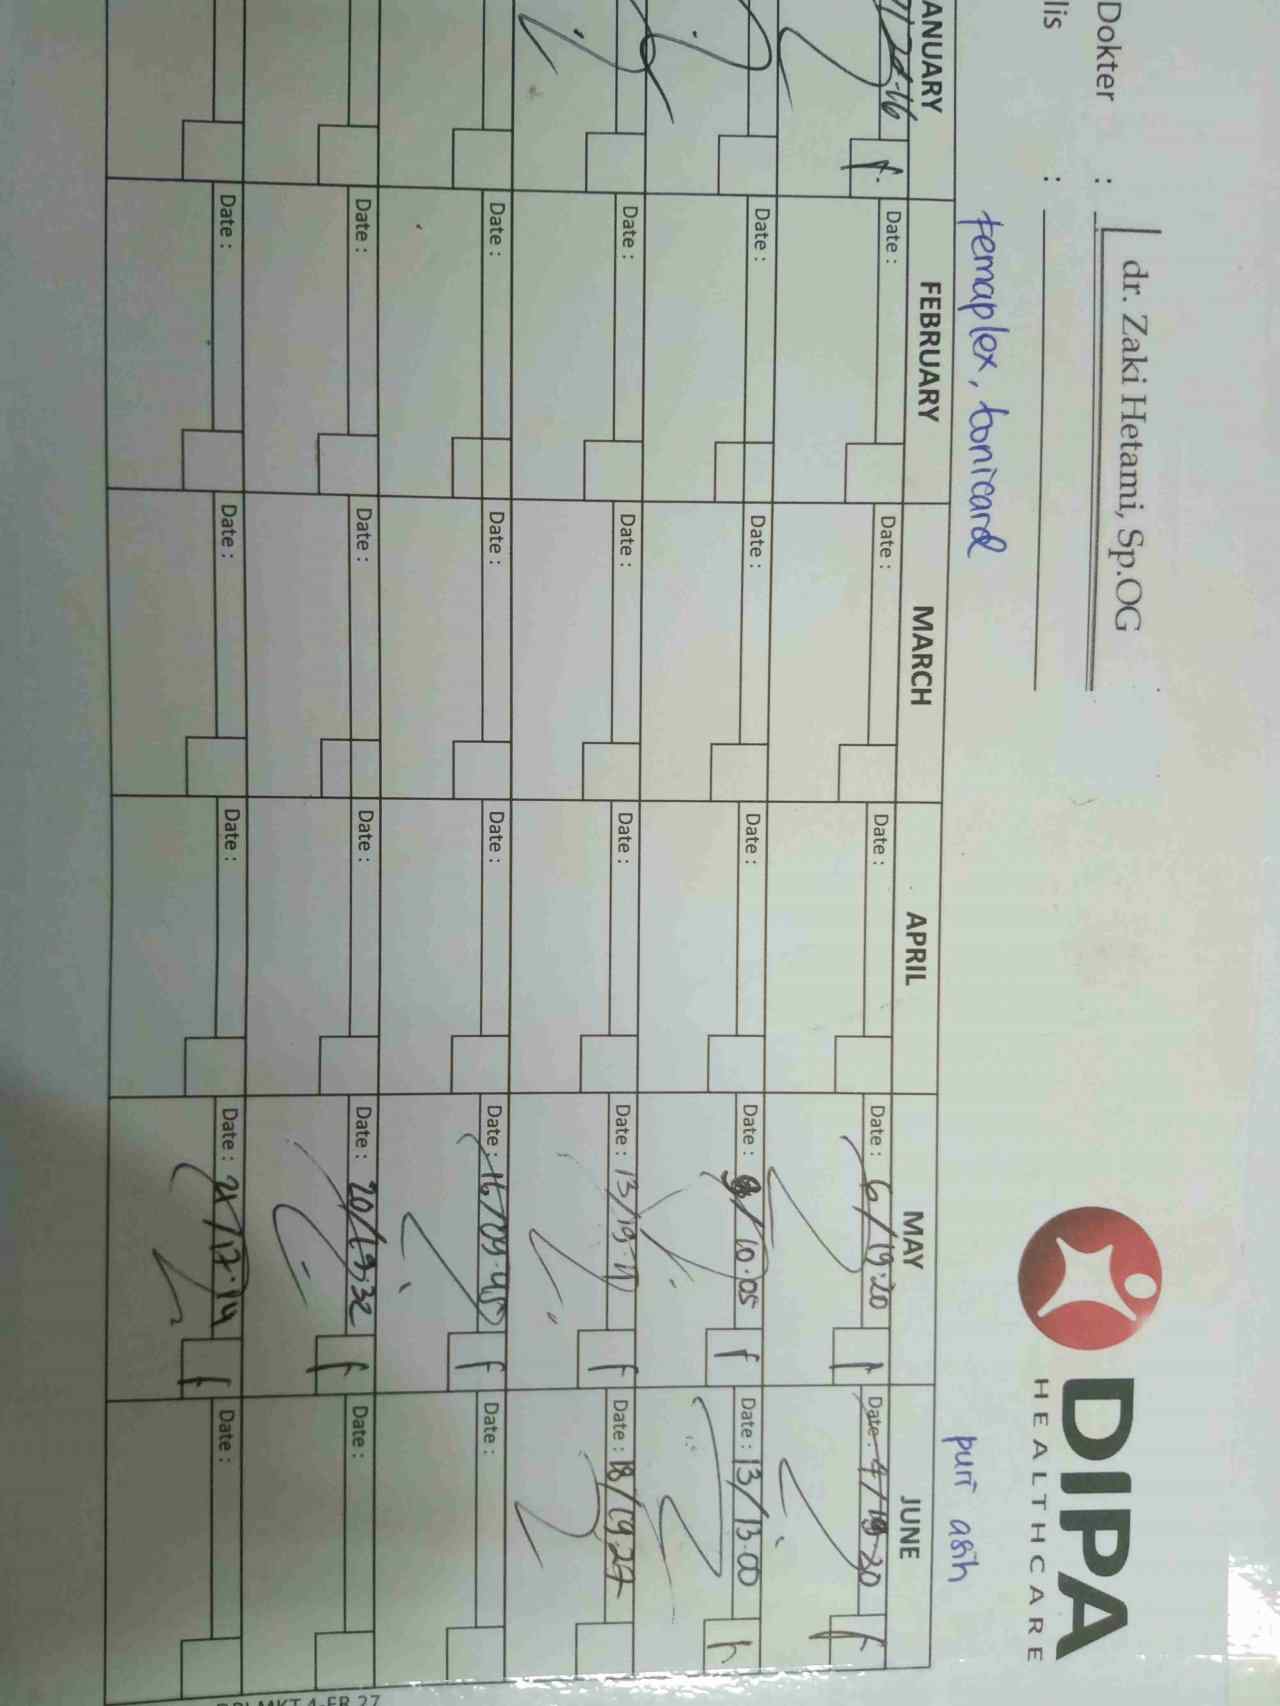 Dokter : dr. Zaki Hetami, Sp.OG
lis :
DIPA
HEALTHCARE
femaplex, tonicard
puri asih
ANUARY FEBRUARY MARCH APRIL MAY JUNE
f. Date : Date : Date : Date : 6/19.20 f Date : 4/19.20 f
Date : Date : Date : Date : 9/10.05 f Date : 13/13.00 h
Date : Date : Date : Date : 13/19. f Date : 18/19.27
Date : Date : Date : Date : 16/09.45 f Date :
Date : Date : Date : Date : 20/19.32 f Date :
Date : Date : Date : Date : 21/17.14 f Date :
MKT.4-FR.27